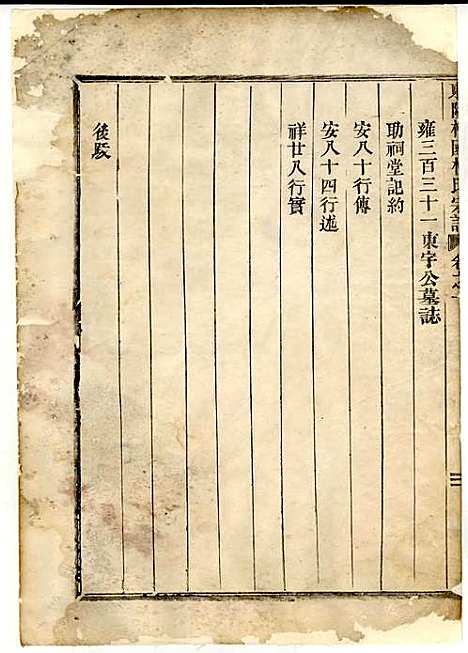 雍三百三十一東宇公墓誌
助祠堂記約
安八十行傳
安八十四行述
祥廿八行實
後跋
三